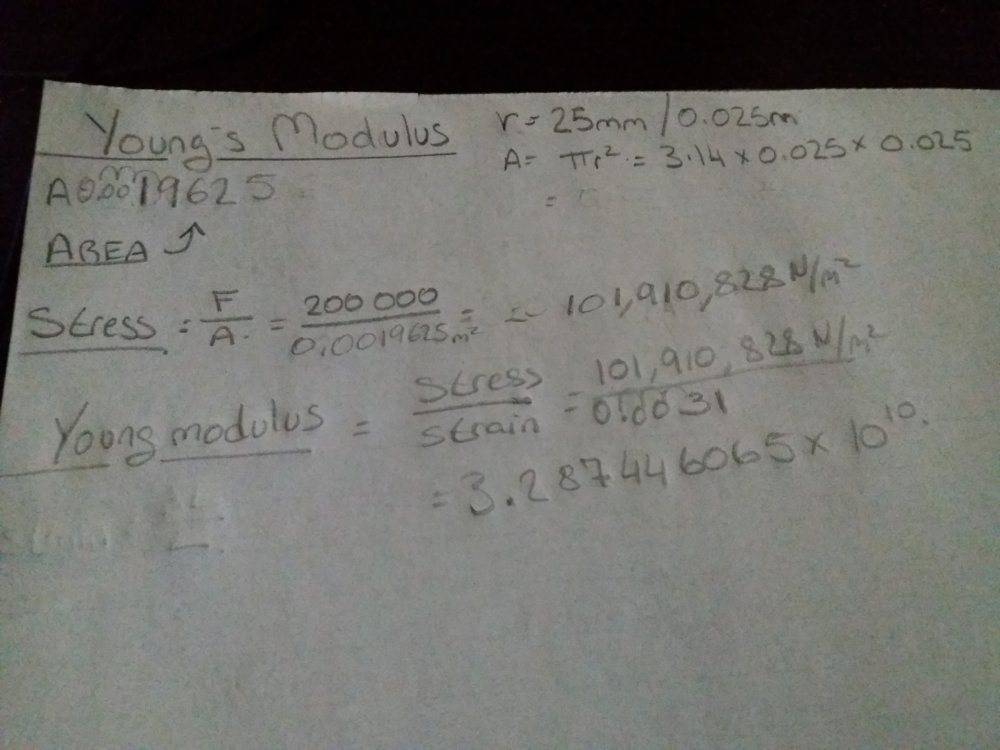 Young's Modulus
r = 25mm / 0.025m
A = πr² = 3.14 × 0.025 × 0.025
=
A 0.0019625
AREA ↑
Stress = F/A = 200 000 / 0.0019625m² = = 101,910,828 N/m²
Young modulus = Stress / Strain = 101,910,828 N/m² / 0.0031
= 3.287446065 × 10¹⁰.